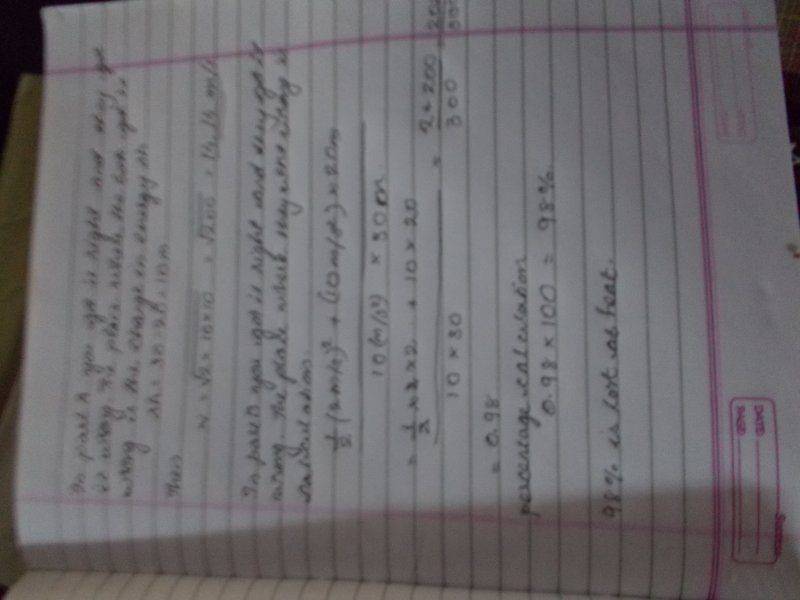 In part A you got is right and they got
is wrong. The place where the each got is
wrong is the change in energy Δh
Δh = 30 - 20 = 10m
Then
v = √2 × 10 × 10 = √200 = 14.14 m/s
In part B you got is right and they got is
wrong. The place where they were wrong is
calculations.
1/2 (2m/s)² + (10m/s²) × 20m
10 (m/s²) × 30m
= 1/2 × 2 × 2 + 10 × 20 = 2 + 200
10 × 30 300
= 0.98
percentage calculation
0.98 × 100 = 98%.
98% is lost as heat.
PAGE
DATE